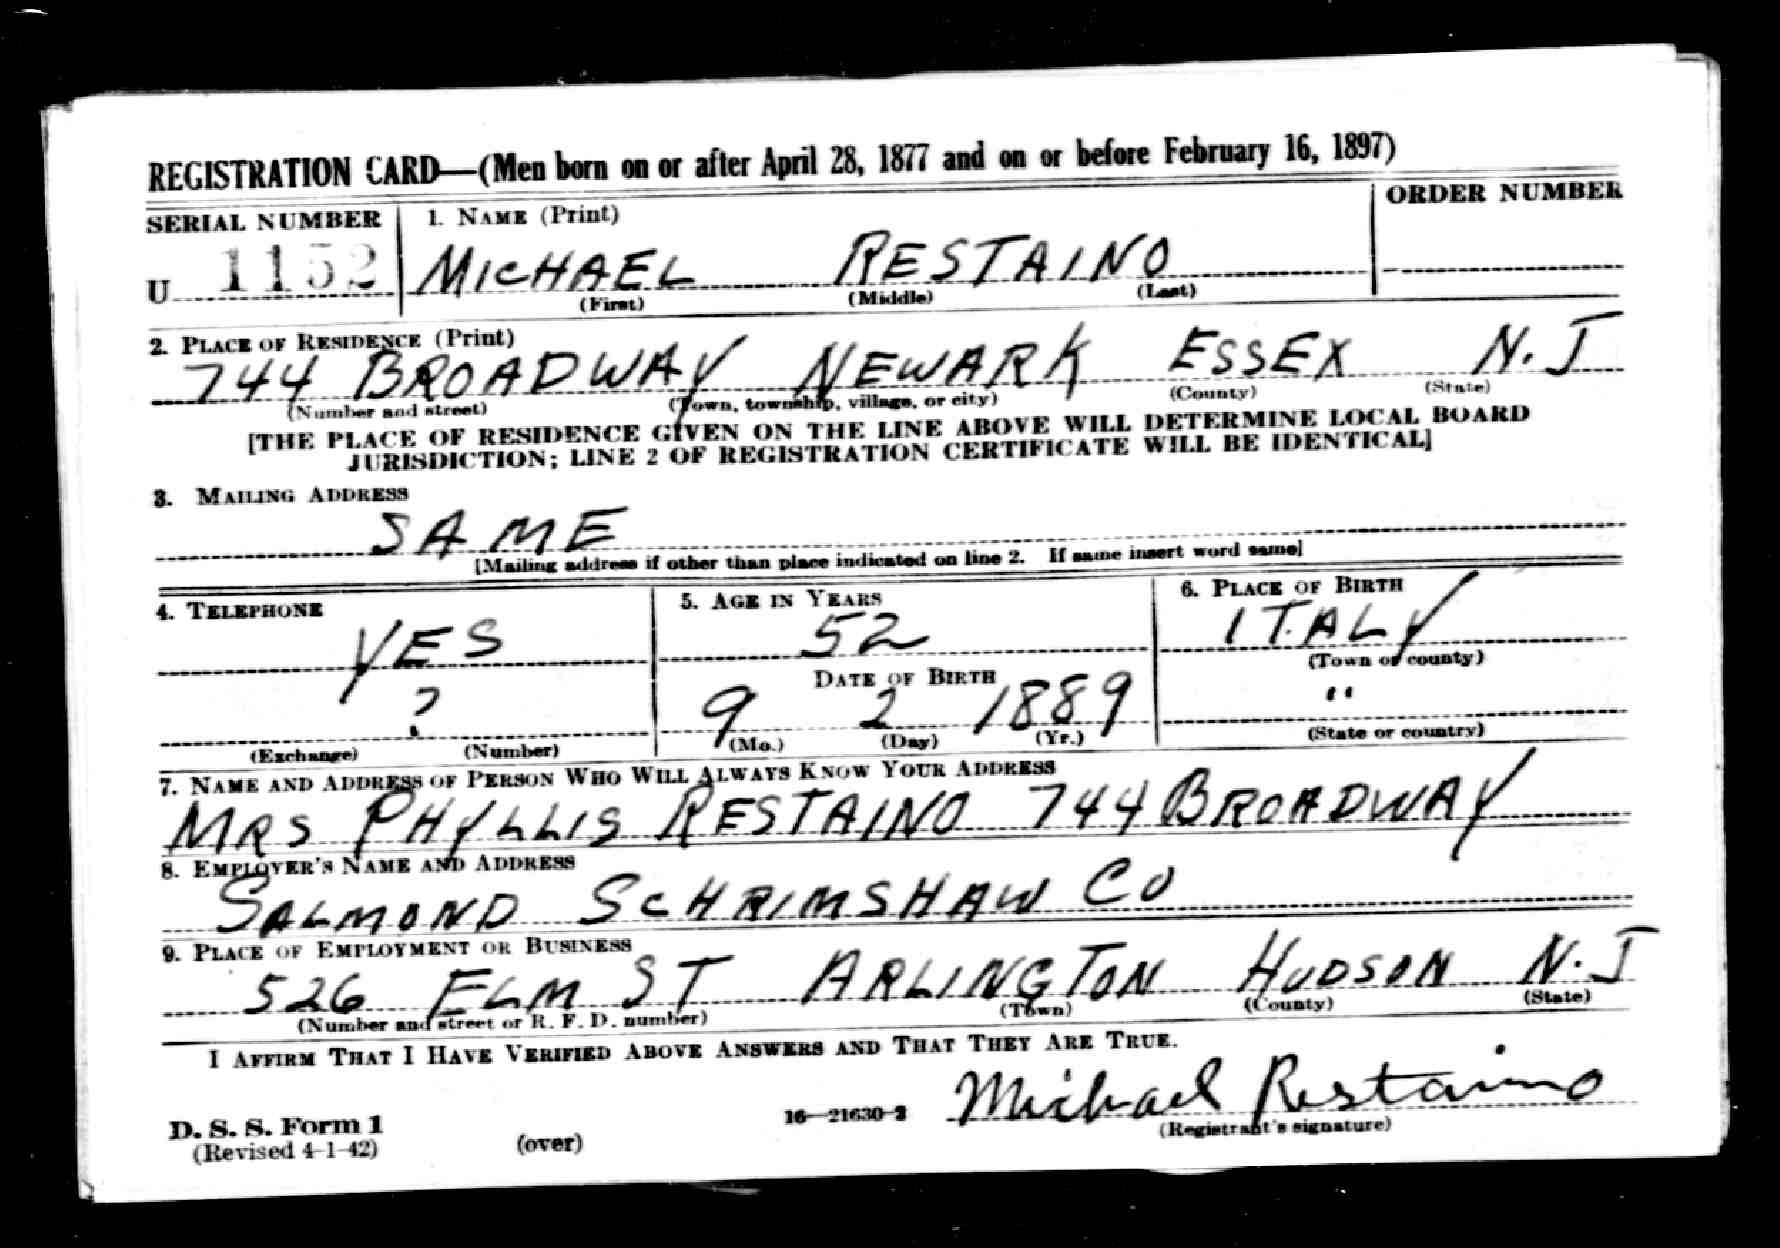 REGISTRATION CARD—(Men born on or after April 28, 1877 and on or before February 16, 1897)
SERIAL NUMBER 1. NAME (Print) ORDER NUMBER
U 1152 MICHAEL RESTAINO
(First) (Middle) (Last)
2. PLACE OF RESIDENCE (Print)
744 BROADWAY NEWARK ESSEX N.J
(Number and street) (Town, township, village, or city) (County) (State)
[THE PLACE OF RESIDENCE GIVEN ON THE LINE ABOVE WILL DETERMINE LOCAL BOARD
JURISDICTION; LINE 2 OF REGISTRATION CERTIFICATE WILL BE IDENTICAL]
3. MAILING ADDRESS
SAME
[Mailing address if other than place indicated on line 2. If same insert word same]
4. TELEPHONE 5. AGE IN YEARS 6. PLACE OF BIRTH
YES 52 ITALY
DATE OF BIRTH (Town or county)
? 9 2 1889 "
(Exchange) (Number) (Mo.) (Day) (Yr.) (State or country)
7. NAME AND ADDRESS OF PERSON WHO WILL ALWAYS KNOW YOUR ADDRESS
MRS PHYLLIS RESTAINO 744 BROADWAY
8. EMPLOYER'S NAME AND ADDRESS
SALMOND SCHRIMSHAW CO
9. PLACE OF EMPLOYMENT OR BUSINESS
526 ELM ST ARLINGTON HUDSON N.J
(Number and street or R. F. D. number) (Town) (County) (State)
I AFFIRM THAT I HAVE VERIFIED ABOVE ANSWERS AND THAT THEY ARE TRUE.
Michael Restaino
D. S. S. Form 1 16—21630-2 (Registrant's signature)
(Revised 4-1-42) (over)